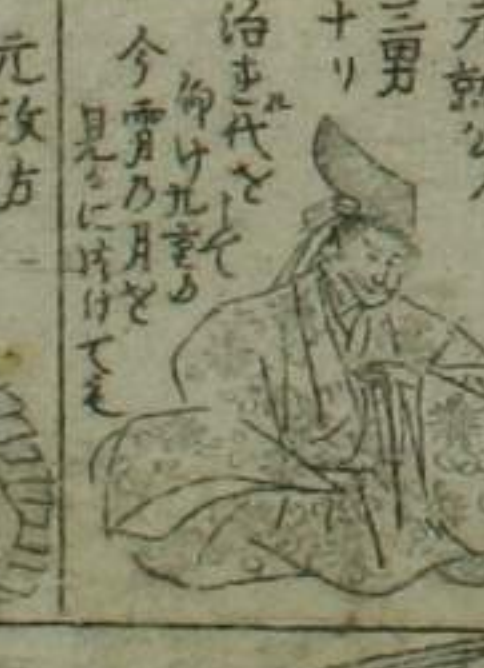 元就公ノ
三男
ナリ
治まれ代を
して
仰け九重の
今宵乃月を
見るに付けても
元政方